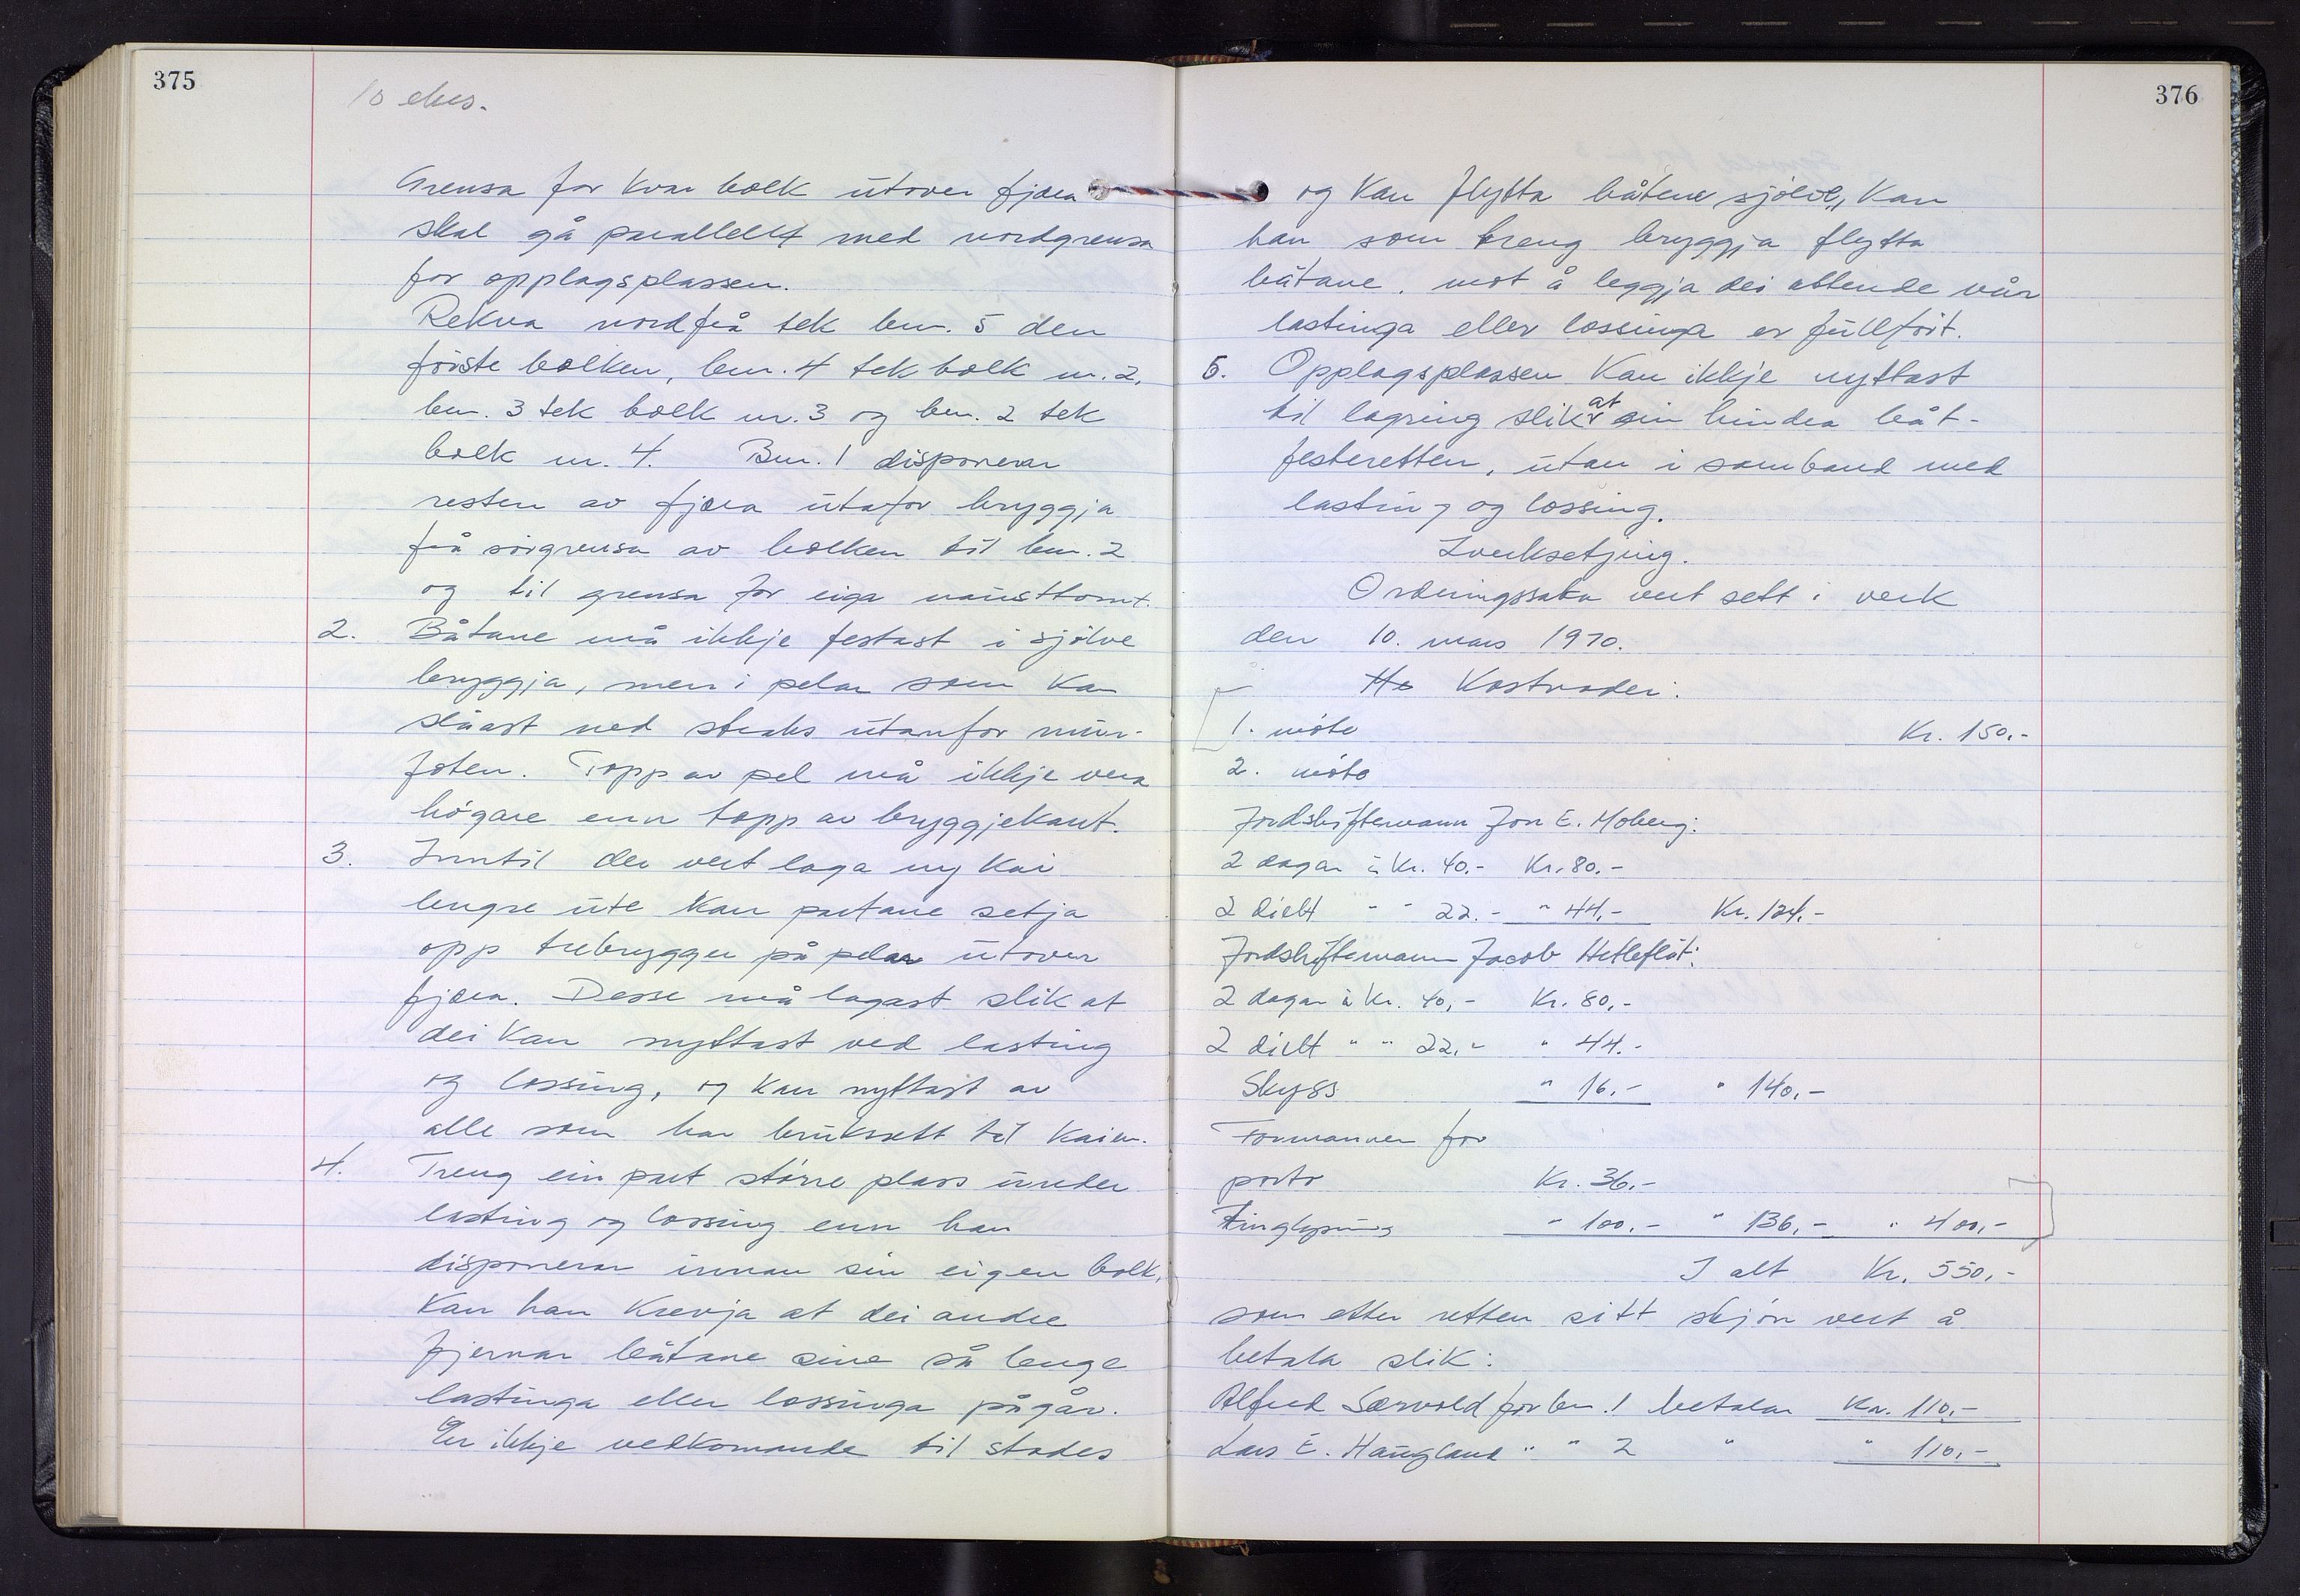 375
10 eks.
Grensa for kvar bolk utover fjæra
skal gå parallellt med nordgrensa
for opplagsplassen.
Rekna nordfrå tek bnr. 5 den
förste bolken, bnr. 4 tek bolk nr. 2,
bnr. 3 tek bolk nr. 3 og bnr. 2 tek
bolk nr. 4. Bnr. 1 disponerar
resten av fjæra utafor bryggja
frå sörgrensa av bolken til bnr. 2
og til grensa for eiga nausttomt.
2. Båtane må ikkje festast i sjölve
bryggja, men i pelar som kan
slåast ned straks utanfor mur-
foten. Topp av pel må ikkje vera
högare enn topp av bryggjekant.
3. Inntil der vert laga ny kai
lengre ute kan partane setja
opp trebrygger på pelar utover
fjæra. Desse må lagast slik at
dei kan nyttast ved lasting
og lossing, og kan nyttast av
alle som har bruksrett til kaien.
4. Treng ein part större plass under
lasting og lossing enn han
disponerar innan sin eigen bolk,
kan han krevja at dei andre
fjernar båtane sine så lenge
lastinga eller lossinga pågår.
Er ikkje vedkomande til stades
376
og kan flytta båtene sjölv, kan
han som treng bryggja flytta
båtane, mot å leggja dei attende når
lastinga eller lossinga er fullfört.
5. Opplagsplassen kan ikkje nyttast
til lagring slik at ein hindra båt-
festeretten, utan i samband med
lasting og lossing.
Iverksetjing.
Ordningssaka vert sett i verk
den 10. mars 1970.
Ho Kostnader:
1. möte Kr. 150.-
2. möte
Jordskiftemann Jon E. Moberg:
2 dagar à Kr. 40.- Kr. 80.-
2 diett " " 22.- " 44.- Kr. 124.-
Jordskiftemann Jacob Hetleflåt:
2 dagar à Kr. 40,- Kr. 80,-
2 diett " " 22,- " 44.-
Skyss " 16.- " 140,-
Formannen for
porto Kr. 36.-
Tinglysing " 100.- " 136,- " 400,-
I alt Kr. 550,-
som etter retten sitt skjön vert å
betala slik:
Alfred Særvold for bnr. 1 betalar Kr. 110,-
Lars E. Haugland " " 2 " " 110,-